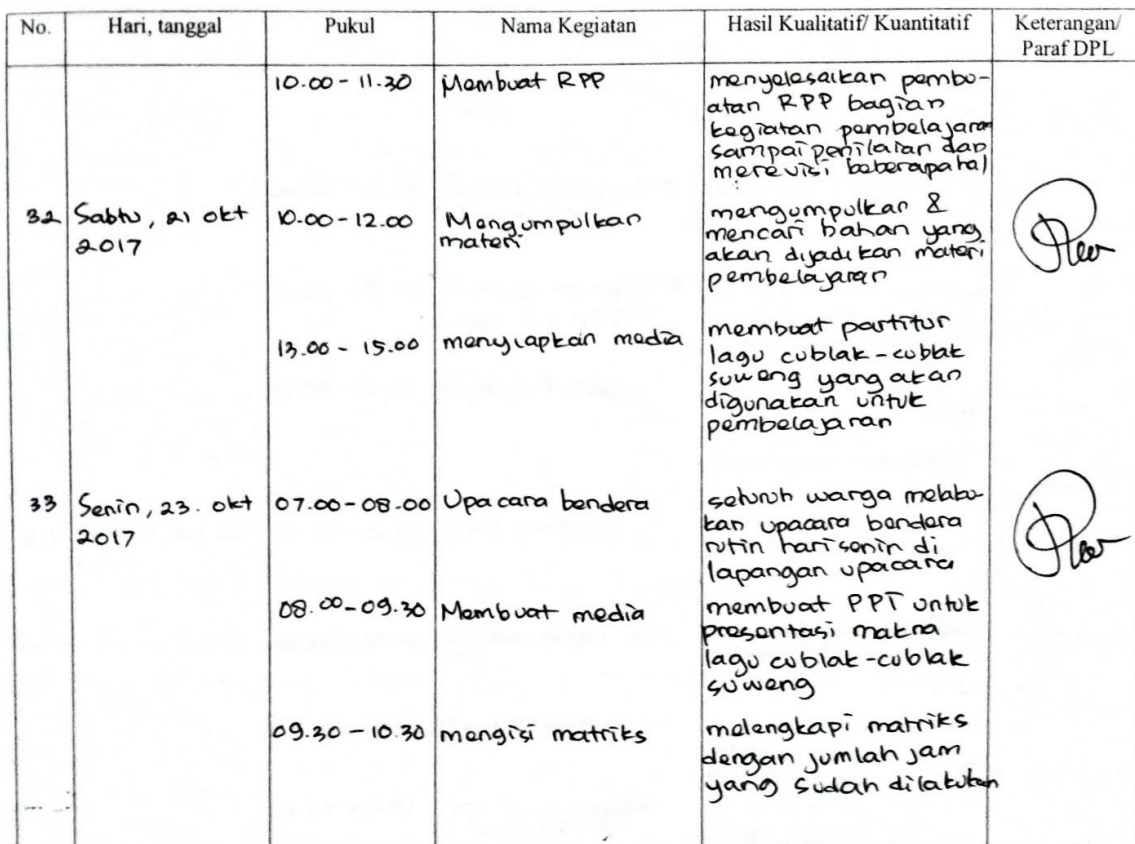 No. Hari, tanggal Pukul Nama Kegiatan Hasil Kualitatif/ Kuantitatif Keterangan/
Paraf DPL
10.00 - 11.30 Membuat RPP menyelesaikan pembu-
atan RPP bagian
kegiatan pembelajaran
sampai penilaian dan
merevisi beberapa hal
32 Sabtu, 21 okt 10.00 - 12.00 Mengumpulkan mengumpulkan &
2017 materi mencari bahan yang
akan dijadikan materi
pembelajaran
13.00 - 15.00 menyiapkan media membuat partitur
lagu cublak - cublak
suweng yang akan
digunakan untuk
pembelajaran
33 Senin, 23. okt 07.00 - 08.00 Upacara bendera seluruh warga melaku-
2017 kan upacara bendera
rutin hari senin di
lapangan upacara
08.00 - 09.30 Membuat media membuat PPT untuk
presentasi makna
lagu cublak - cublak
suweng
09.30 - 10.30 mengisi matriks melengkapi matriks
dengan jumlah jam
yang sudah dilakukan